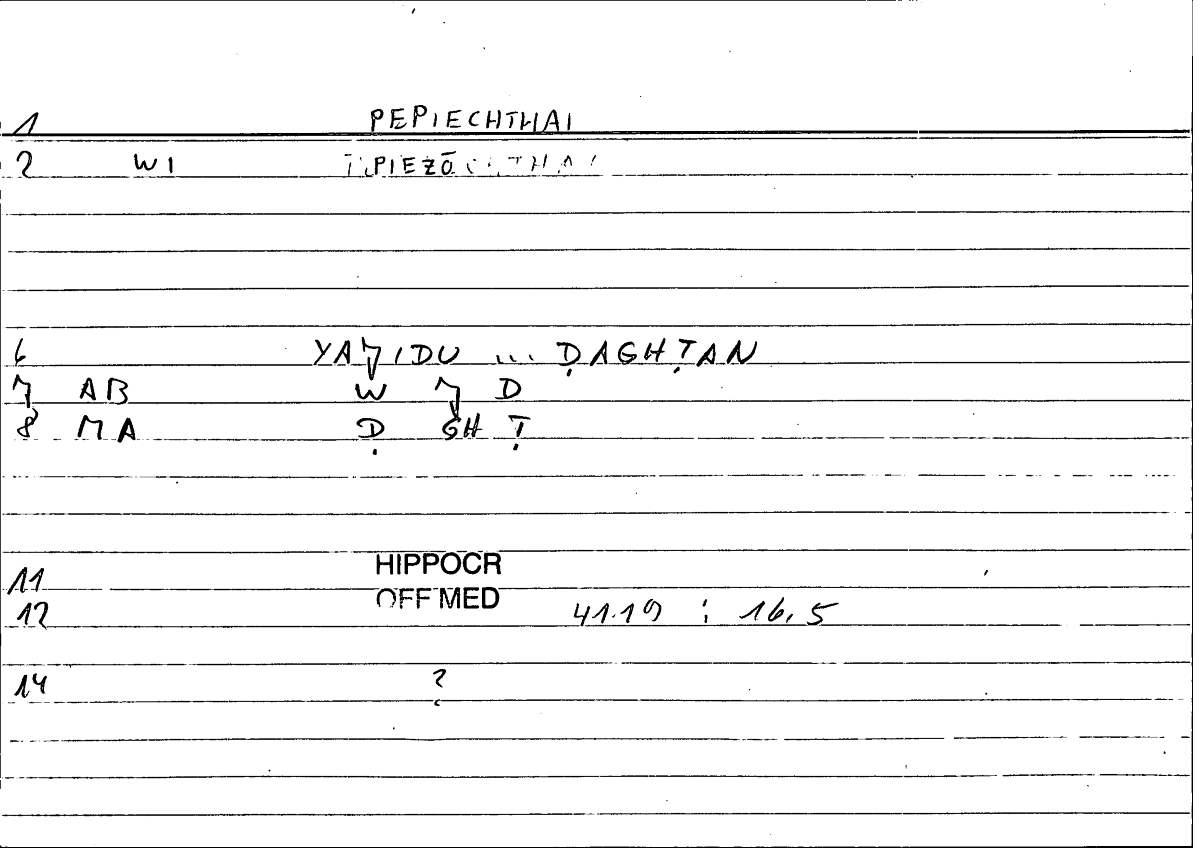 1 PEPIECHTHAI
2 WI PIEZŌ
6 YA7IDU ... ḌAGHṬAN
7 AB W 7 D
8 MA Ḍ GH Ṭ
HIPPOCR
11
OFF MED
12 41.19 : 16,5
14 ?